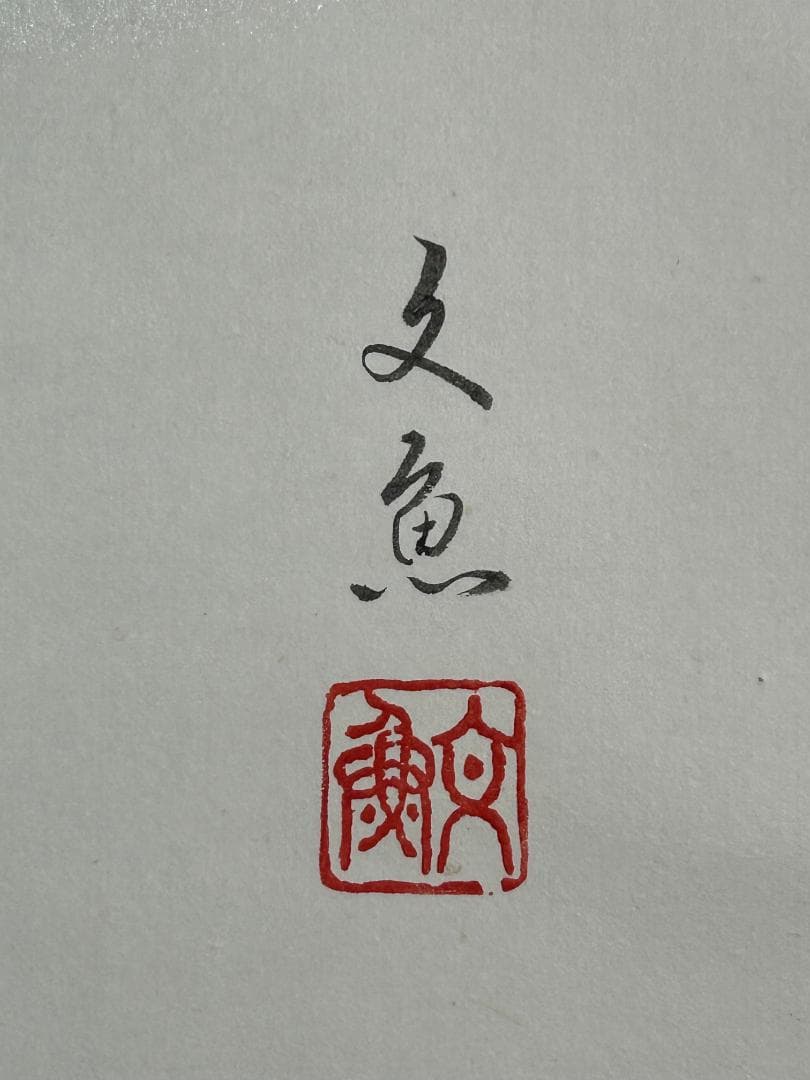 文
魚
文魚